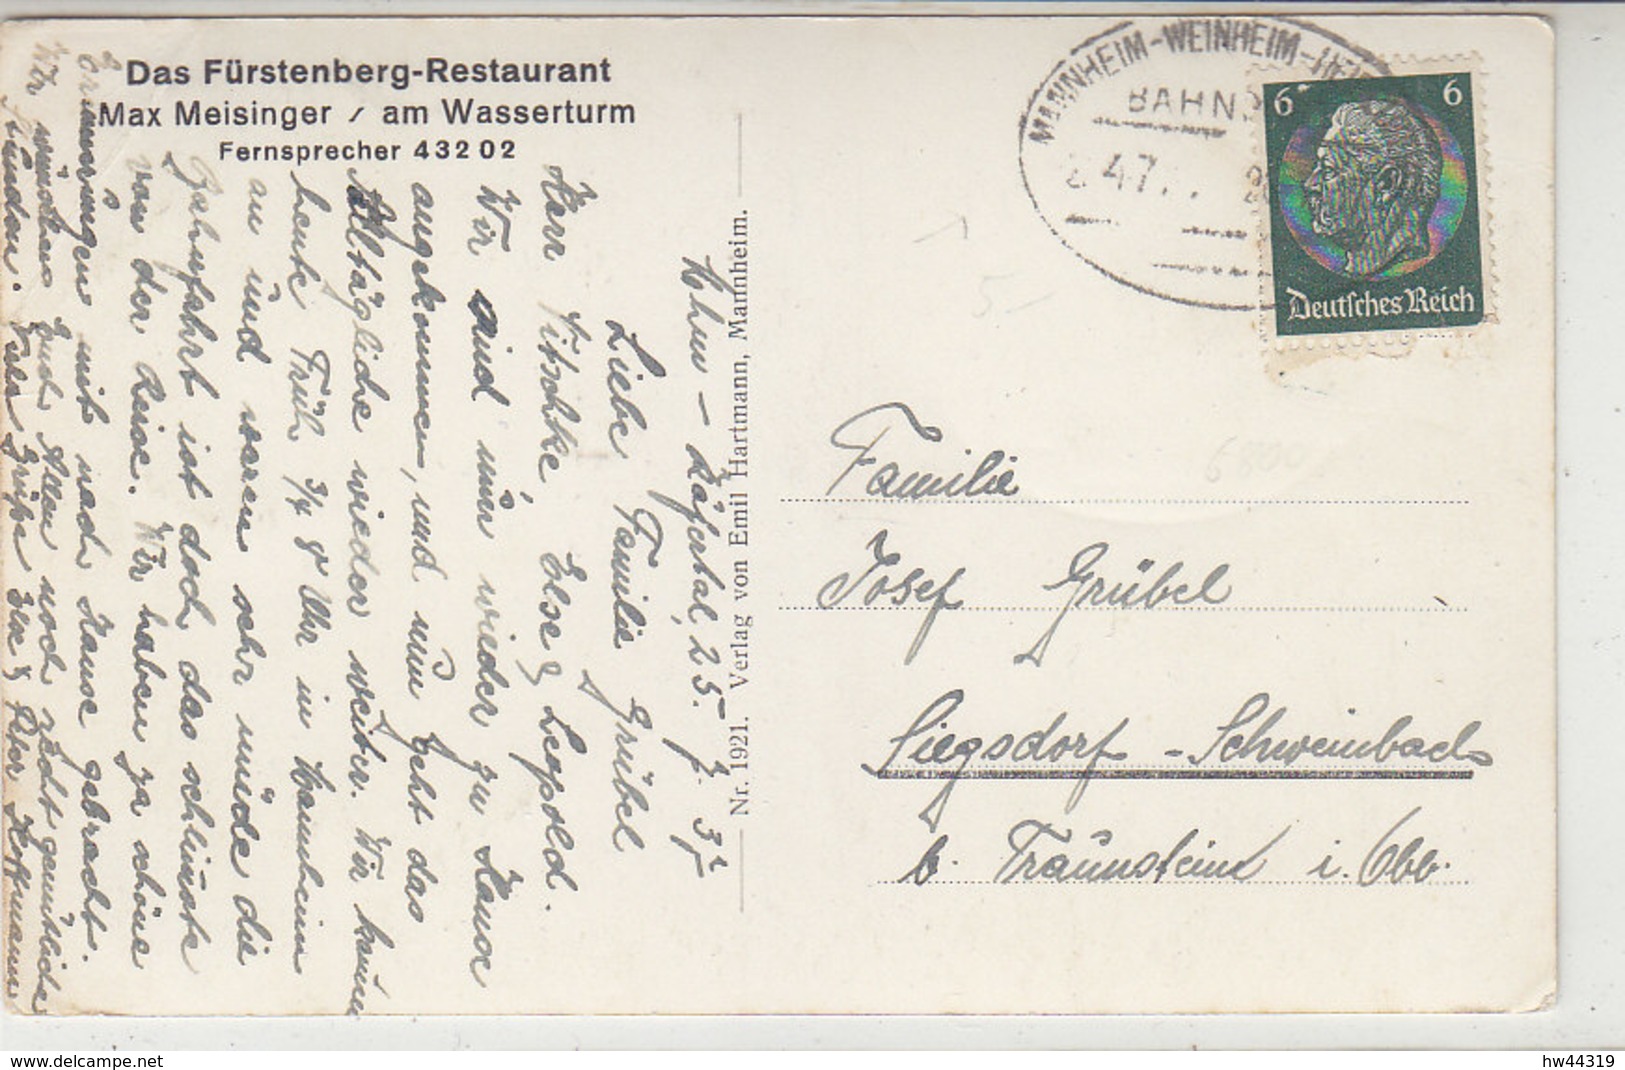 Das Fürstenberg-Restaurant
Max Meisinger / am Wasserturm
Fernsprecher 432 02
Mhm - Käfertal, 25. 7. 37
Liebe Familie Grübel
Herr Nitschke, Else & Leopold.
Wir sind nun wieder zu Hause
angekommen, und nun geht das
Alltägliche wieder weiter. Wir kamen
heute Früh 3/4 8 Uhr in Mannheim
an und waren sehr müde die
Bahnfahrt ist doch das schlimmste
von der Reise. Wir haben ja schöne
Erinnerungen mit nach Hause gebracht.
Wir wünschen Euch Allen noch recht gemütliche
Stunden. Viele Grüße & Peter Hoffmann
Nr. 1921. Verlag von Emil Hartmann, Mannheim.
MANNHEIM-WEINHEIM-HEI
BAHN
47
6 6
Deutsches Reich
Familie
Josef Grübel
Siegsdorf - Schweinbach
b. Traunstein i. Obb.
6800
www.delcampe.net
hw44319